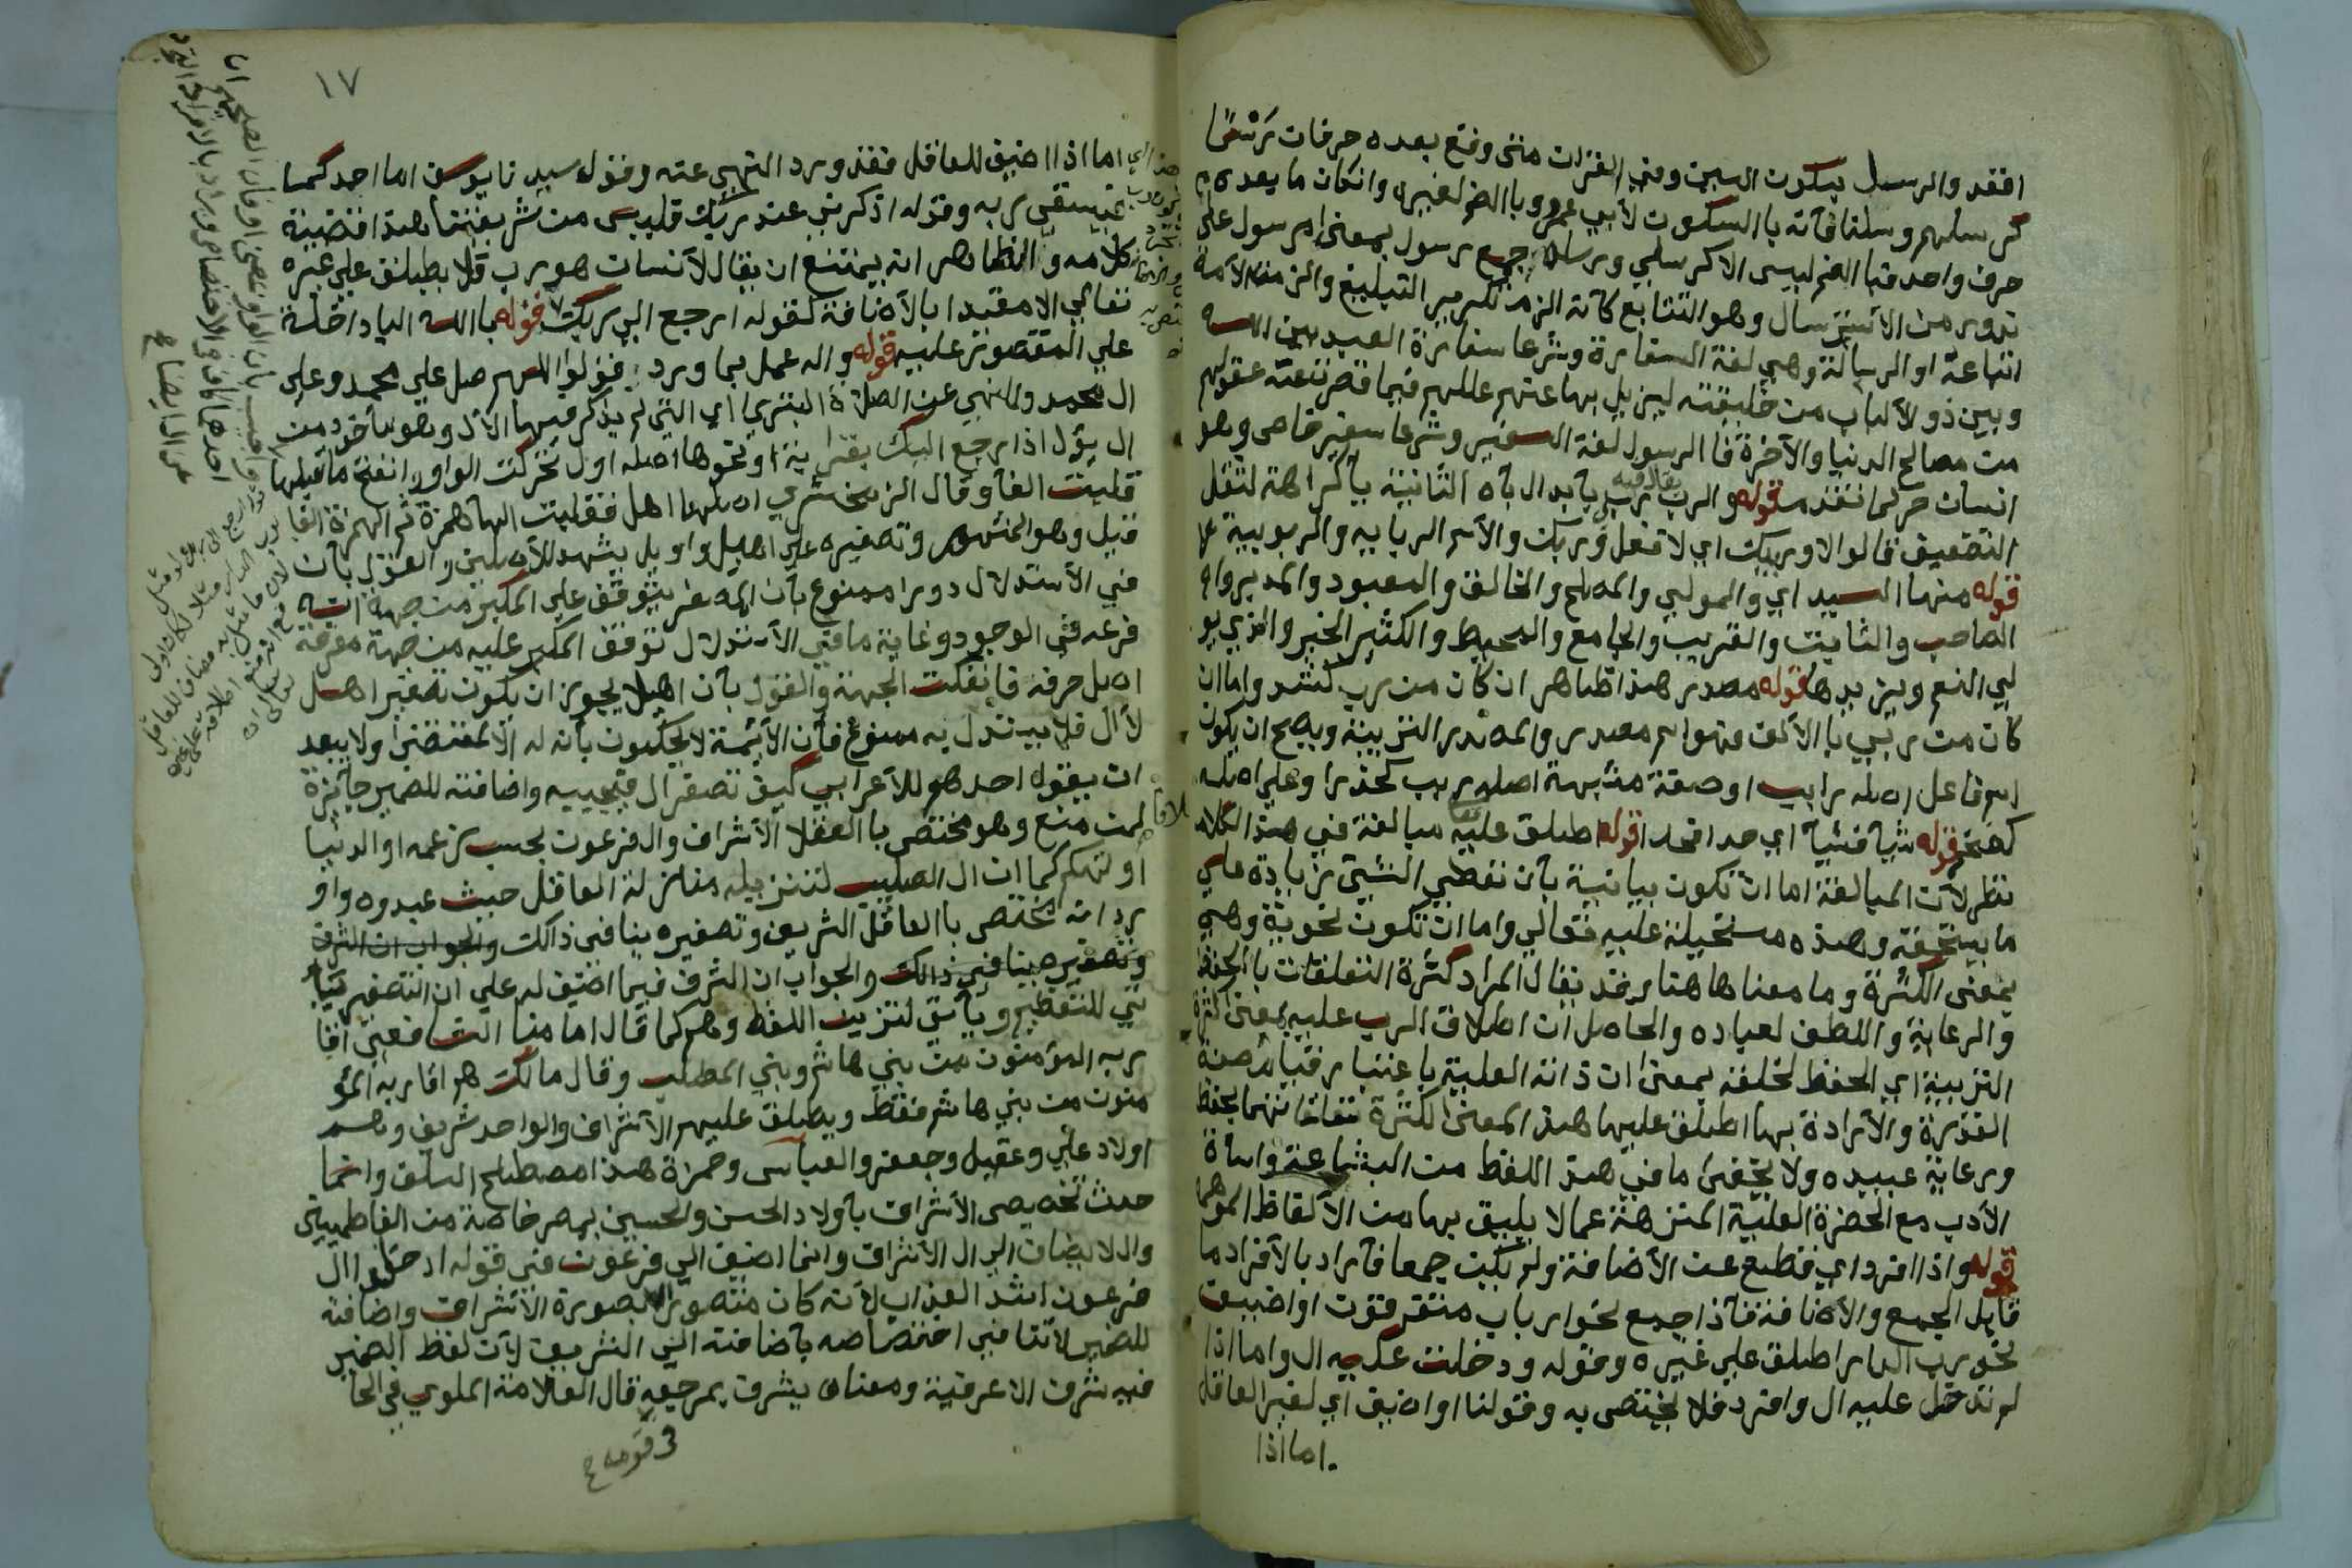 افقد والرسل بسكون السين وفي القرات متى وقع بعده حرفات كرسلنا
كرسلهم وسلنا فانه با السكوت لأبي عمرو وبا الضم لغيره وانكان ما بعده
حرف واحد فبا الضم ليس الا كرسلي ورسله جمع رسول بمعنى مرسول على
ندور من الأسترسال وهو التتابع كأنه الزم تكرير التبليغ والزمت الأمة
اتباعه او الرسالة وهي لغة السفارة وشرعا سفارة العبد بين الله
وبين ذو الألباب من خليقته ليزيل بها عنهم عللهم فيما قصرت عنه عقولهم
من مصالح الدنيا والآخرة فا الرسول لغة السفير وشرعا سفير خاص وهو
انسان حر كما تقدم قوله والرب يقال فيه رب بأبدال بآه الثانية يآ كراهة لثقل
التضعيف قالوا لا وربيك اي لا فعل وربك والأسم الربابيه والربوبية
قوله منها السيد اي والمولي والمصلح والخالق والمعبود والمدبر
الصاحب والثابت والقريب والجامع والمحيط والكثير الخير والذي يو
لي النعم ويزيدها قوله مصدر هذا ظاهر ان كان من رب كشد واما ان
كان من ربي با الألف فهو اسم مصدر والمصدر التربية ويصح ان يكون
اسم فاعل اصله رابب او صفة مشبهة اصله ربب كحذر وعلي اصله
كضخم قوله شيأ فشيأ اي حدا فحدا قوله اطلق عليه تعالى مبالغة في هذا الكلام
نظر لأن المبالغة اما ان تكون بيانية بأن تعطي الشئ زيادة علي
ما يستحقه وهذه مستحيلة عليه تعالي واما ان تكون نحوية وهي
بمعنى الكثرة وما معناها هنا وقد يقال المراد كثرة التعلقات بالحفظ
والرعاية واللطف لعباده والحاصل ان اطلاق الرب عليه بمعنى كثرة
التربية اي الحفظ لخلقه بمعنى ان ذاته العلية باعتبار قيام صفة
القدرة والأرادة بها اطلق عليها هذا المعنى لكثرة تعلقاتهما بحفظ
ورعاية عبيده ولا يخفى ما في هذا اللفظ من البشاعة واساة
الأدب مع الحضرة العلية المنزهة عما لا يليق بها من الألفاظ الموهمة
قوله واذا افرد اي قطع عن الأضافة ولم يكن جمعا فأراد بالأفراد ما
قابل الجمع والأضافة فأذا جمع نحو ارباب متفرقون او اضيف
نحو رب الدار اطلق علي غيره وقوله ودخلت عليه ال واما اذا
لم تدخل عليه ال وافرد فلا يختص به وقولنا او اضيف اي لغير العاقل
اما اذا
١٧
اما اذا اضيف للعاقل فقد ورد النهي عنه وقول سيدنا يوسف اما احدكما
فيسقي ربه وقوله اذكرني عند ربك فليس من شريعتنا هذا قضية
كلامه والظاهر انه يمتنع ان يقال لأنسان هو رب فلا يطلق علي غيره
تعالي الا مقيدا بالأضافة كقوله ارجع الي ربك قوله با الله الباد اخلة
علي المقصور عليه قوله واله عمل بما ورد قولوا اللهم صل علي محمد وعلي
ال محمد والنهي عن الصلاة البتري اي التي لم يذكر فيها الأل وهو مأخوذ من
ال يؤل اذا رجع اليك بقرابة او نحوها اصله اول تحركت الواو وانفتح ما قبلها
قلبت الفآ وقال الزمخشري اصلها اهل فقلبت الها همزة ثم الهمزة الفا
قيل وهو المشهور وتصغيره علي اهيل واويل يشهد للأصلين والقول بأن
في الأستدلال دورا ممنوع بأن المصغر يتوقف علي المكبر من جهة انه
فرعه في الوجود وغاية ما في الأستدلال توقف المكبر عليه من جهة معرفة
اصل حرفه فانفكت الجهة والقول بأن اهيلا يجوز ان يكون تصغير اهل
لا ال فلا يستدل به ممنوع فأن الأئمة لا يحكمون بأنه له الا لمقتضى ولا يبعد
ان يقول احدهم للأعرابي كيف تصغر ال فيجيبه واضافته للضمير جائزة
لمن منع وهو مختص با العقلا الأشراف وال فرعون بحسب زعمه او الدنيا
او لتهكم كما ان ال الصليب لتنزيله منزلة العاقل حيث عبدوه واو
رد انه يختص با العاقل الشريف وتصغيره ينافي ذالك والجواب ان الشرف
وتصغيره ينافي ذالك والجواب ان الشرف فيما اضيف له علي ان التصغير يأ
تي للتعظيم ويأتي لتزيين اللفظ وهم كما قال امامنا الشافعي اقا
ربه المؤمنون من بني هاشم وبني المطلب وقال مالك هم اقاربه المؤ
منون من بني هاشم فقط ويطلق عليهم الأشراف والواحد شريف وهم
اولاد علي وعقيل وجعفر والعباس وحمزة هذا مصطلح السلف وانما
حدث تخصيص الأشراف بأولاد الحسن والحسين بمصر خاصة من الفاطميين
وال لا يضاف الي ال الأشراف وانما اضيف الي فرعون في قوله ادخلوا ال
فرعون اشد العذاب لأنه كان متصورا بصورة الأشراف واضافته
للضمير لا تنافي اختصاصه بأضافته الي الشريف لأن لفظ الضمير
فيه شرف الاعرفية ومعناه يشرف بمرجعه قال العلامة الملوي في الحا